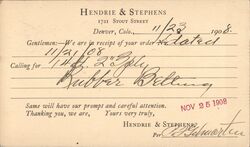 HENDRIE & STEPHENS
1721 STOUT STREET
Denver, Colo., 11/23 1908.
Gentlemen:—We are in receipt of your order dated
11/21/08
Calling for 2 Ply
Rubber Belting
Same will have our prompt and careful attention.
Thanking you, we are, Yours very truly,
NOV 25 1908
HENDRIE & STEPHENS
Per